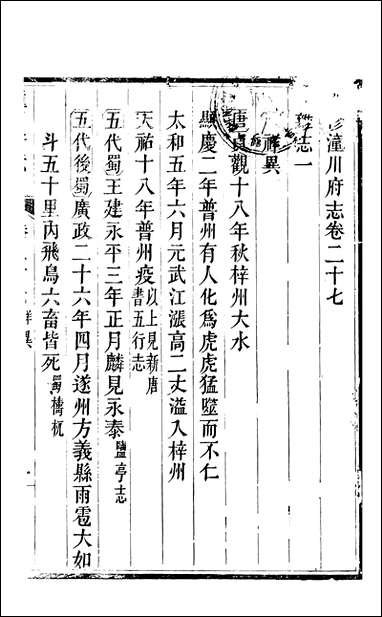 潼川府志卷二十七
志一
祥異
唐貞觀十八年秋梓州大水
顯慶二年普州有人化為虎虎猛噬而不仁
太和五年六月元武江漲高二丈溢入梓州
天祐十八年普州疫以上見新唐書五行志
五代蜀王建永平三年正月麟見永泰鹽亭志
五代後蜀廣政二十六年四月遂州方義縣雨雹大如
斗五十里內飛鳥六畜皆死蜀檮杌